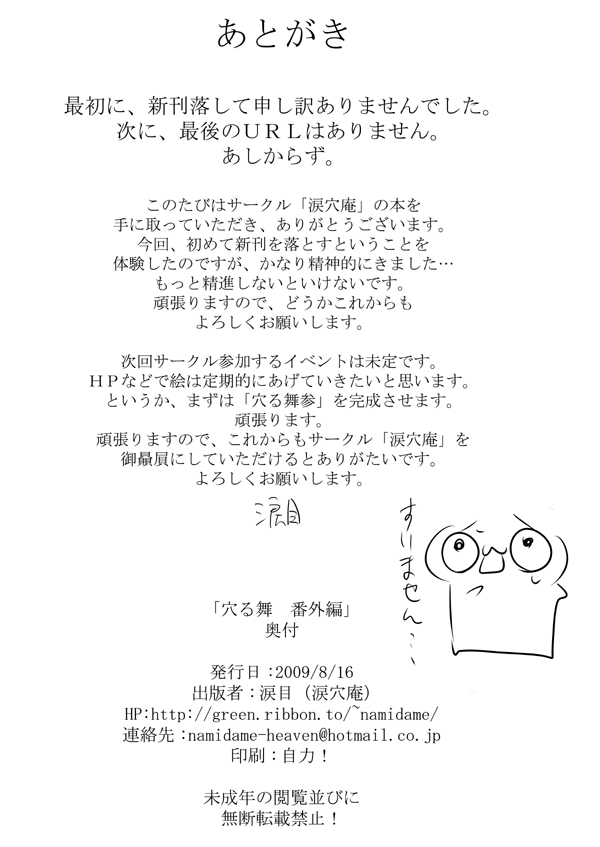 あとがき
最初に、新刊落して申し訳ありませんでした。
次に、最後のＵＲＬはありません。
あしからず。
このたびはサークル「涙穴庵」の本を
手に取っていただき、ありがとうございます。
今回、初めて新刊を落とすということを
体験したのですが、かなり精神的にきました…
もっと精進しないといけないです。
頑張りますので、どうかこれからも
よろしくお願いします。
次回サークル参加するイベントは未定です。
ＨＰなどで絵は定期的にあげていきたいと思います。
というか、まずは「穴る舞参」を完成させます。
頑張ります。
頑張りますので、これからもサークル「涙穴庵」を
御贔屓にしていただけるとありがたいです。
よろしくお願いします。
涙目
すいません…
「穴る舞　番外編」
奥付
発行日：2009/8/16
出版者：涙目（涙穴庵）
HP:http://green.ribbon.to/~namidame/
連絡先：namidame-heaven@hotmail.co.jp
印刷：自力！
未成年の閲覧並びに
無断転載禁止！